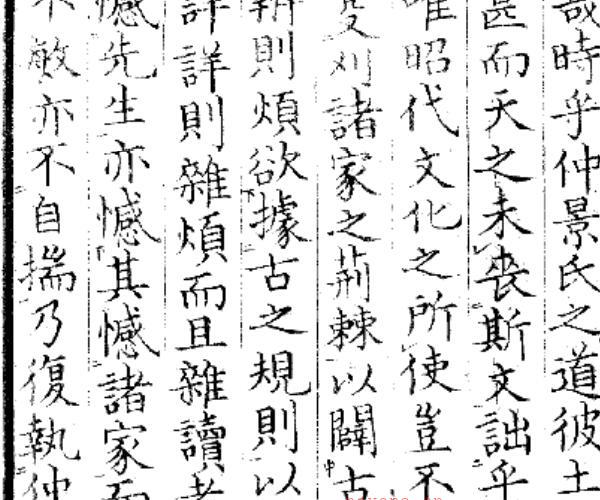 哉時乎仲景氏之道彼土
甚而天之未喪斯文詘乎
唯昭代文化之所使豈不
刈諸家之荊棘以闢古
辨則煩欲據古之規則以
詳詳則雜煩而且雜讀者
憾先生亦憾其憾諸家而
不敏亦不自揣乃復執仲